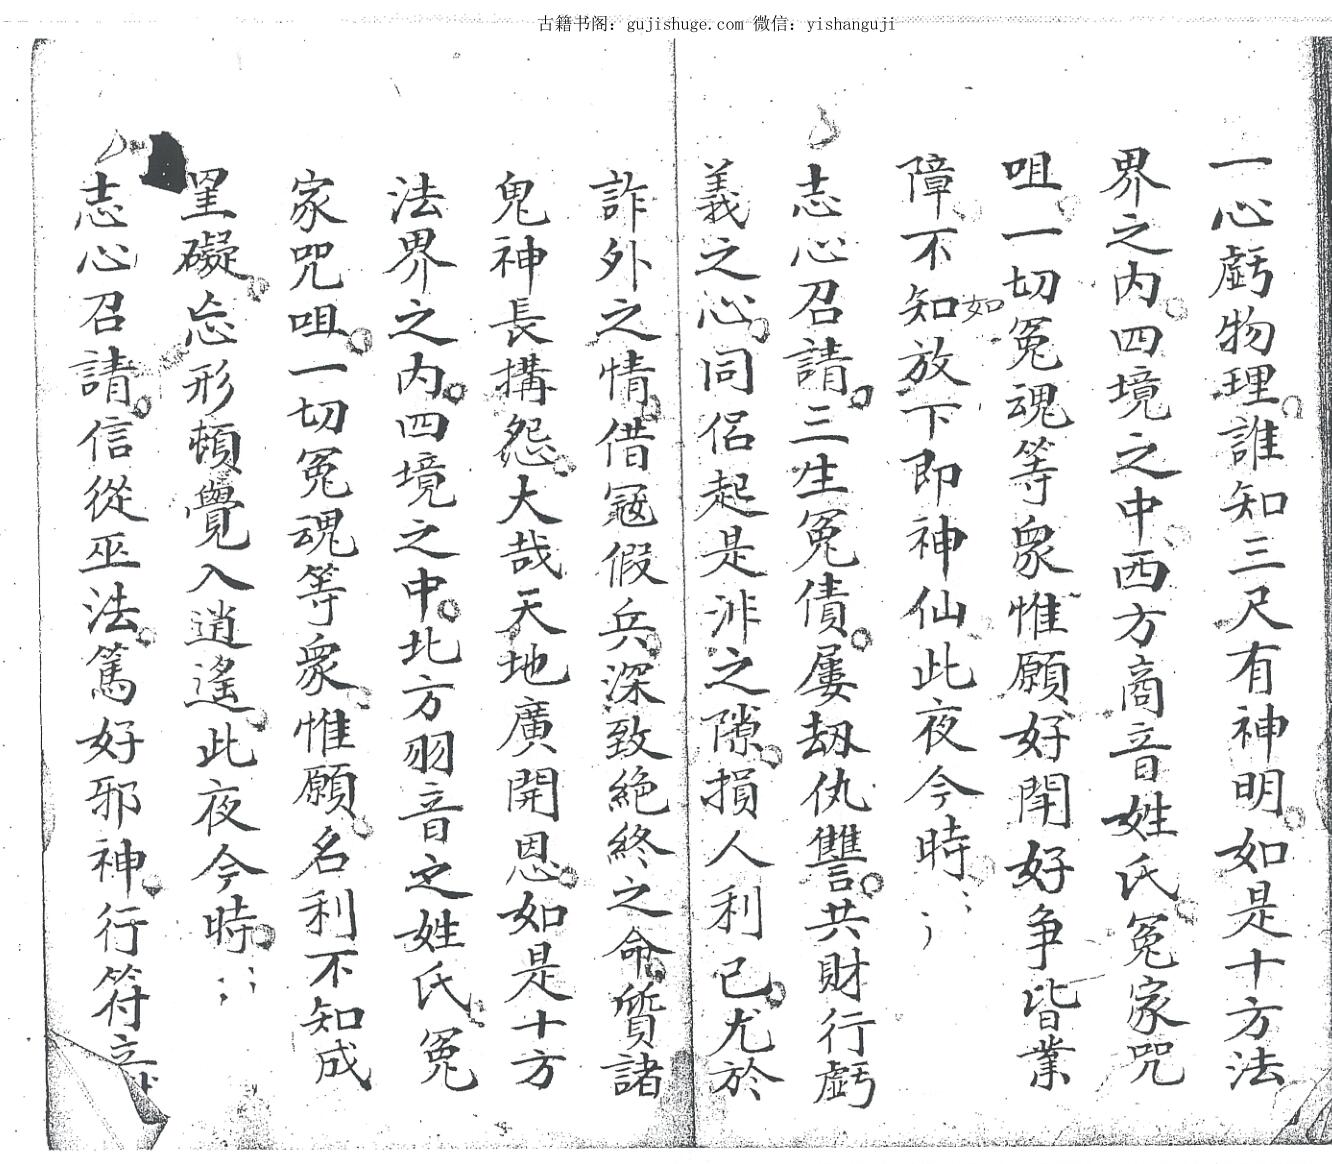 古籍书阁：gujishuge.com 微信：yishanguji
一心虧物理誰知三尺有神明如是十方法
界之内四境之中西方商音姓氏冤家咒
咀一切冤魂等衆惟願好閗好争皆業
障不知放下即神仙此夜今時；；
如
志心召請三生冤債屢劫仇讐共財行虧
義之心同侶起是非之隙損人利己尤於
詐外之情借寇假兵深致絶終之命質諸
鬼神長搆怨大哉天地廣開恩如是十方
法界之内四境之中北方羽音之姓氏冤
家咒咀一切冤魂等衆惟願名利不知成
罣礙忘形頓覺入逍遙此夜今時；；
志心召請信從巫法篤好邪神行符立